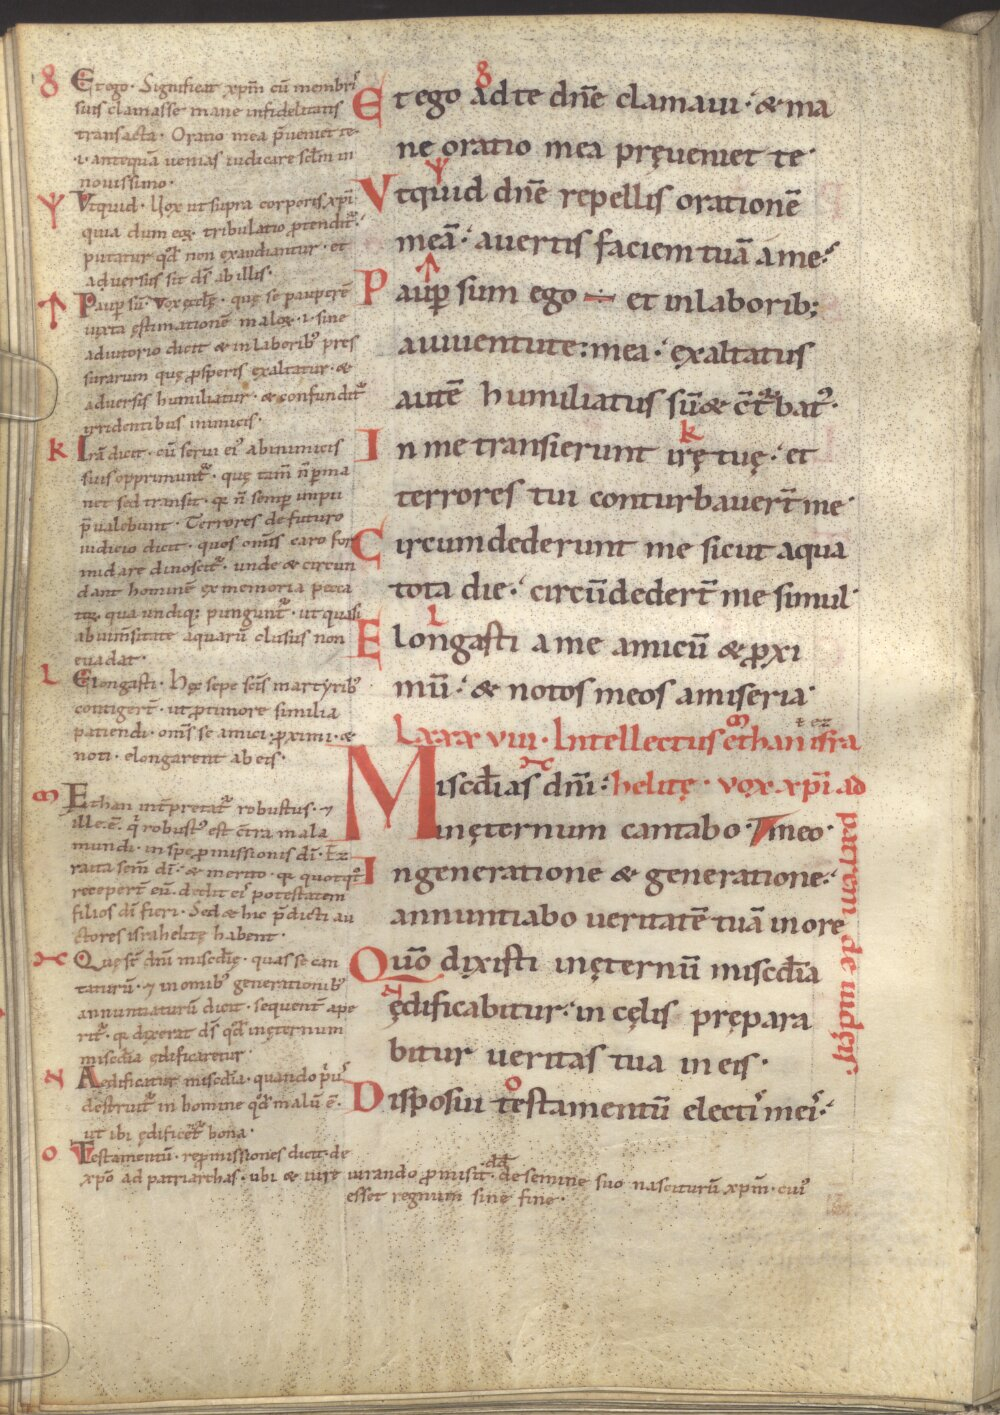 Et ego. Significat xpm̄ cū membri᷒
suis clamasse mane infidelitatis
transacta. Oratio mea p̄ueniet te.
.i. antequā uenias iudicare sclm̄ in
nouissimo.
Vtquid. Uox ut supra corporis xpī
quia dum eꝗ tribulatio ꝓtenditͬ.
putatur qd̄ non exaudiantur. et
aduersus sit ds̄ ab illis.
Paup̱ sū. Vox ęccłę. quę se pauperē
iuxta ęstimationē maloꝝ .i. sine
adiutorio dicit & in laboribꝰ pres
surarum quę ꝓsperis exaltatur. &
aduersis humiliatur. & confunditͬ
irridentibus inimicis.
Irā dicit. cū serui eiꝰ ab inimicis
suis opprimuntͬ. quę tam̄ n̄ p̱ma
net sed transit. qͥ n̄ semp̱ impii
p̄ualebunt. Terrores de futuro
iudicio dicit. quos om̄is caro for
midare dinoscitͬ. unde & circun
dant hominē ex memoria pecca
ti. qua undiqꝫ pungunt. ut quasi
ab uīmsitate aquarū clusus non
euadat.
Elongasti. Hoc sepe scīs martyribꝰ
contigert̄. ut ꝓ timore similia
patiendi. om̄s se amici ꝓximi. &
noti. elongarent ab eis.
Eathan int̄pretatͬ robustus. ⁊
ille.ē. qͥ robustꝰ est c̄tra mala
mundi. in spe ꝓmissionis dī. Ez
raita sem̄ dī. & merito. qͥ quotqͦt
recepert̄ eū. dedit eiꝰ potestatem
filios dī fieri. Sed & hic p̄dicti au
ctores israhelitę habent.
Quę st̄ dn̄i misc̄dię. quas se can
taturū. ⁊ in omībꝰ generationibꝰ
annuntiaturū dicit. sequent̄ ape
ritͬ. qͥ dixerat ds̄ qd̄ inęternum
misc̄dia ędificaretur
Aedificatur misc̄dia. quando pͥuꝰ
destruitͬ in homine qd̄ malū ē.
ut ibi ędificet̄ bona.
Testamentū. repmissiones dicit. de
xpō ad patriarchas. ubi & iure iurando ꝓmisit. dd̄ de semine suo nasciturū xpm̄. cuiꝰ
esset regnum sine fine.
Et ego ad te dnē clamaui : & ma
ne oratio mea pręueniet te.
Vtquid dnē repellis orationē
meā : auertis faciem tuā a me :
Paup̱ sum ego ∻ et in laborib;
a iuuentute : mea. exaltatus
autē humiliatus sū & c̄tͬbatꝰ.
In me transierunt irę tuę : et
terrores tui conturbauert̄ me.
Circumdederunt me sicut aqua
tota die : circūdedert̄ me simul.
Elongasti a me amicū & ꝓxi
mū : & notos meos a miseria.
Lxxxviii. Intellectus ethan isra
Misc̄dias dnī : helitę. vox xpī ad
inęternum cantabo. meo.
In generatione & generatione :
annuntiabo ueritatē tuā in ore
patrem de iudęis
Quō dixisti inęternū misc̄dia
ędificabitur : in cęlis prępara
bitur ueritas tua in eis.
Disposui testamentū electis meis :